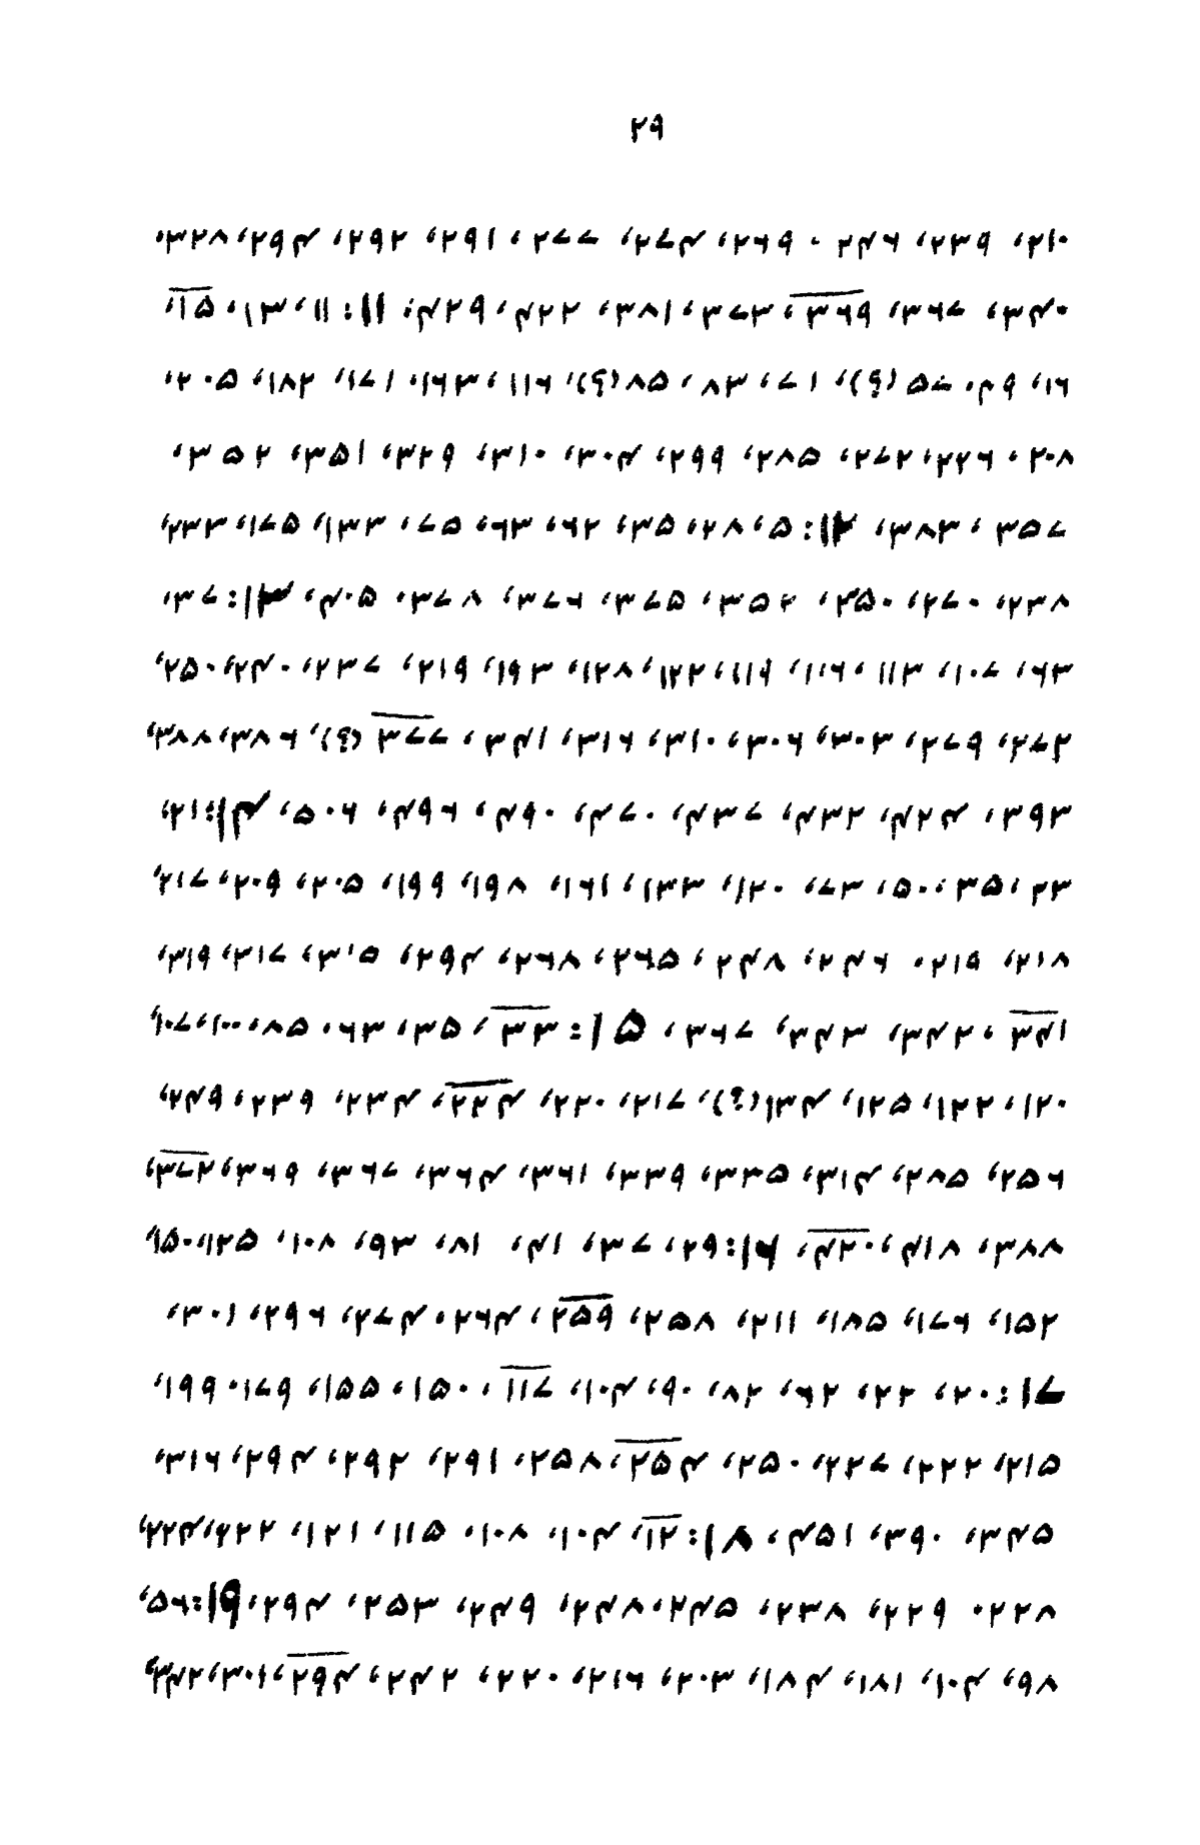 ۲۹
۲۱۰، ۲۳۹، ۲۴۶، ۲۶۹، ۲۷۴، ۲۷۷، ۲۹۱، ۲۹۲، ۲۹۴، ۳۲۸،
۳۴۰، ۳۶۷، ۳۶۹، ۳۷۳، ۳۸۱، ۴۲۲، ۴۲۹؛ ۱۱: ۱۱، ۱۳، ۱۵،
۱۶، ۴۹، ۵۷ (؟)، ۷۱، ۸۳، ۸۵(؟)، ۱۱۶، ۱۶۳، ۱۷۱، ۱۸۲، ۲۰۵،
۲۰۸، ۲۲۶، ۲۷۲، ۲۸۵، ۲۹۹، ۳۰۴، ۳۱۰، ۳۲۹، ۳۵۱، ۳۵۲،
۳۵۷، ۳۸۳، ۱۲: ۵، ۲۸، ۳۵، ۶۲، ۶۳، ۷۵، ۱۳۳، ۱۷۵، ۲۳۳،
۲۳۸، ۲۷۰، ۳۵۰، ۳۵۲، ۳۷۵، ۳۷۶، ۳۷۸، ۴۰۵، ۱۳: ۳۷،
۶۳، ۱۰۷، ۱۱۳، ۱۱۶، ۱۱۹، ۱۲۲، ۱۲۸، ۱۹۳، ۲۱۹، ۲۳۷، ۲۴۰، ۲۵۰،
۲۷۲، ۲۷۹، ۳۰۳، ۳۰۶، ۳۱۰، ۳۱۶، ۳۴۱، ۳۷۷ (؟)، ۳۸۶، ۳۸۸،
۳۹۳، ۴۲۴، ۴۳۲، ۴۳۷، ۴۷۰، ۴۹۰، ۴۹۶، ۵۰۶، ۱۴: ۲۱،
۲۳، ۳۵، ۵۰، ۷۳، ۱۲۰، ۱۳۳، ۱۶۱، ۱۹۸، ۱۹۹، ۲۰۵، ۲۰۹، ۲۱۷،
۲۱۸، ۲۱۹، ۲۴۶، ۲۴۸، ۲۶۵، ۲۶۸، ۲۹۴، ۳۱۵، ۳۱۷، ۳۱۹،
۳۴۱، ۳۴۲، ۳۴۳، ۳۶۷، ۱۵: ۳۳، ۳۵، ۶۳، ۸۵، ۱۰۰، ۱۰۷،
۱۲۰، ۱۲۲، ۱۲۵، ۱۳۴(؟)، ۲۱۷، ۲۲۰، ۲۲۴، ۲۳۴، ۲۳۹، ۲۴۹،
۲۵۶، ۲۸۵، ۳۱۴، ۳۳۵، ۳۳۹، ۳۶۱، ۳۶۴، ۳۶۷، ۳۶۹، ۳۷۲،
۳۸۸، ۴۱۸، ۴۲۰، ۱۶: ۲۹، ۳۷، ۴۱، ۸۱، ۹۳، ۱۰۸، ۱۲۵، ۱۵۰،
۱۵۲، ۱۷۶، ۱۸۵، ۲۱۱، ۲۵۸، ۲۵۹، ۲۶۴، ۲۷۴، ۲۹۶، ۳۰۱،
۱۷: ۲۰، ۲۲، ۶۲، ۸۲، ۹۰، ۱۰۴، ۱۱۷، ۱۵۰، ۱۵۵، ۱۷۹، ۱۹۹،
۲۱۵، ۲۲۲، ۲۲۷، ۲۵۰، ۲۵۴، ۲۵۸، ۲۹۱، ۲۹۲، ۲۹۴، ۳۱۶،
۳۴۵، ۳۹۰، ۴۵۱، ۱۸: ۱۲، ۱۰۴، ۱۰۸، ۱۱۵، ۱۲۱، ۲۲۲، ۲۲۴،
۲۲۸، ۲۲۹، ۲۳۸، ۲۴۵، ۲۴۸، ۲۴۹، ۲۵۳، ۲۹۴، ۱۹: ۵۶،
۹۸، ۱۰۴، ۱۸۱، ۱۸۴، ۲۰۳، ۲۱۶، ۲۲۰، ۲۴۲، ۲۹۴، ۳۰۱، ۳۴۲،